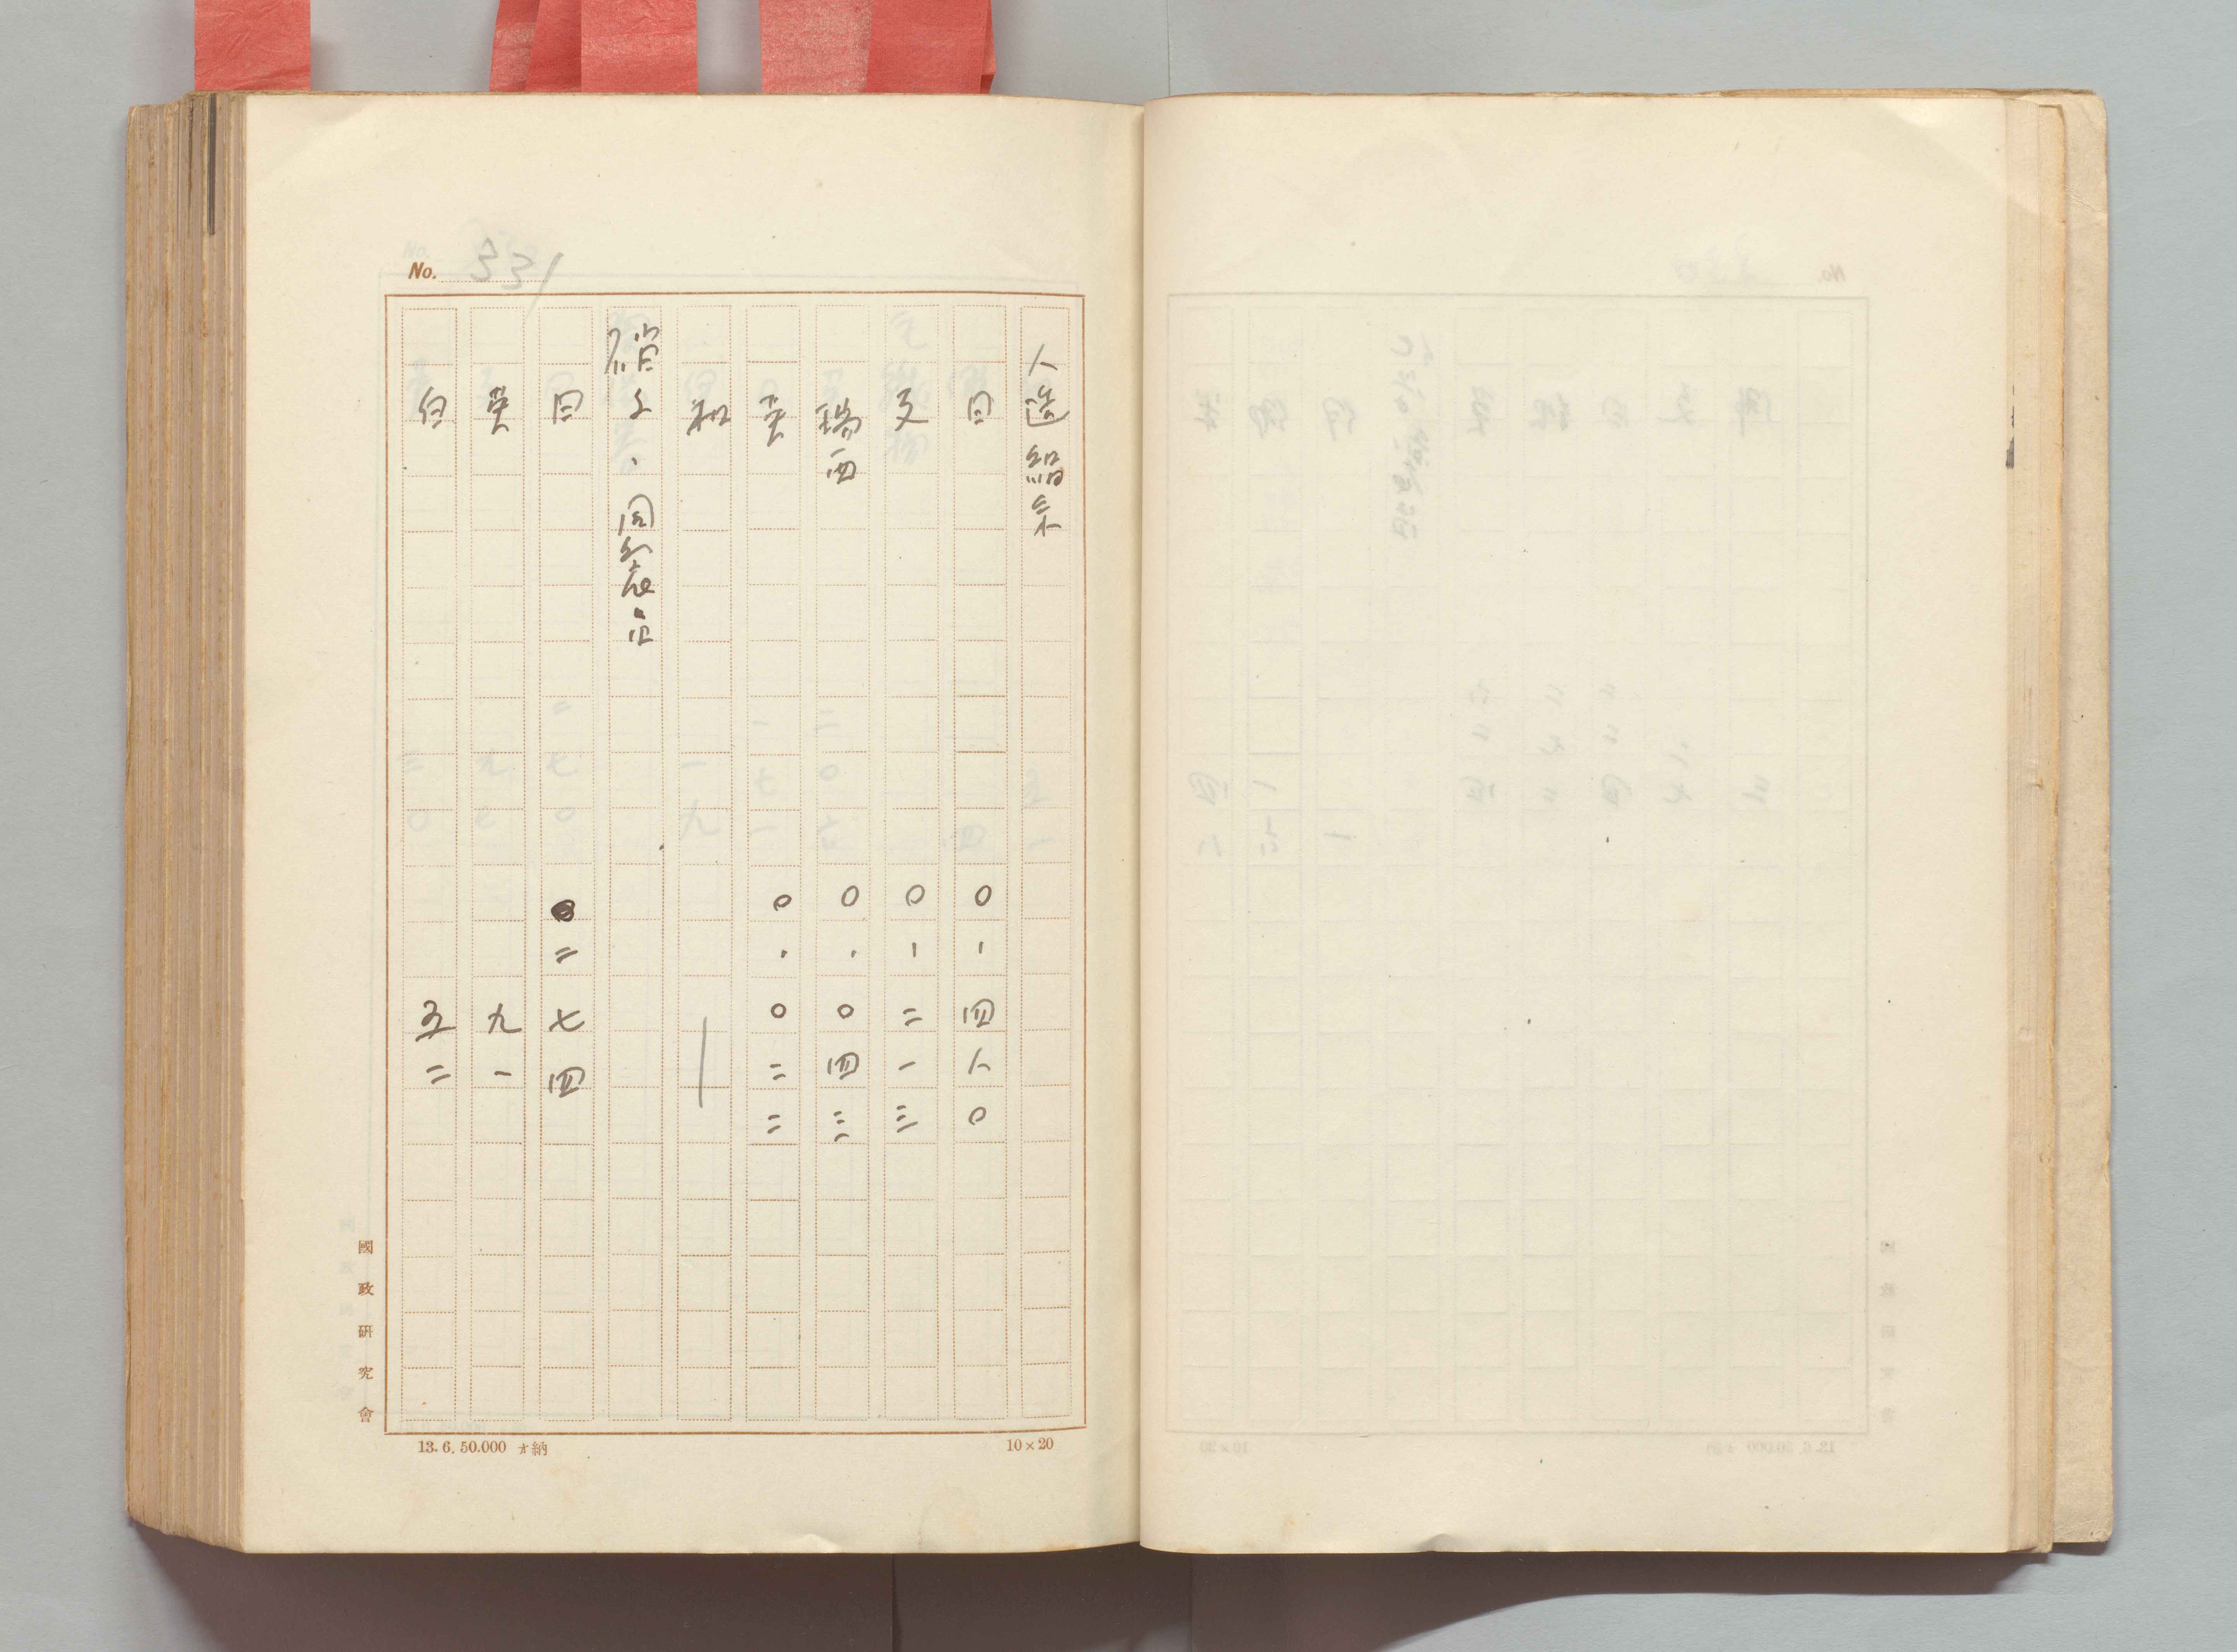 No. 331
人造絹糸
日 〇、四八〇
〇、二一三
瑞西 〇、〇四三
英 〇、〇二二
和 ―
硝子、同製品
日 二七四
英 九一
白 五二
國政研究會
13. 6. 50.000 納
10×20